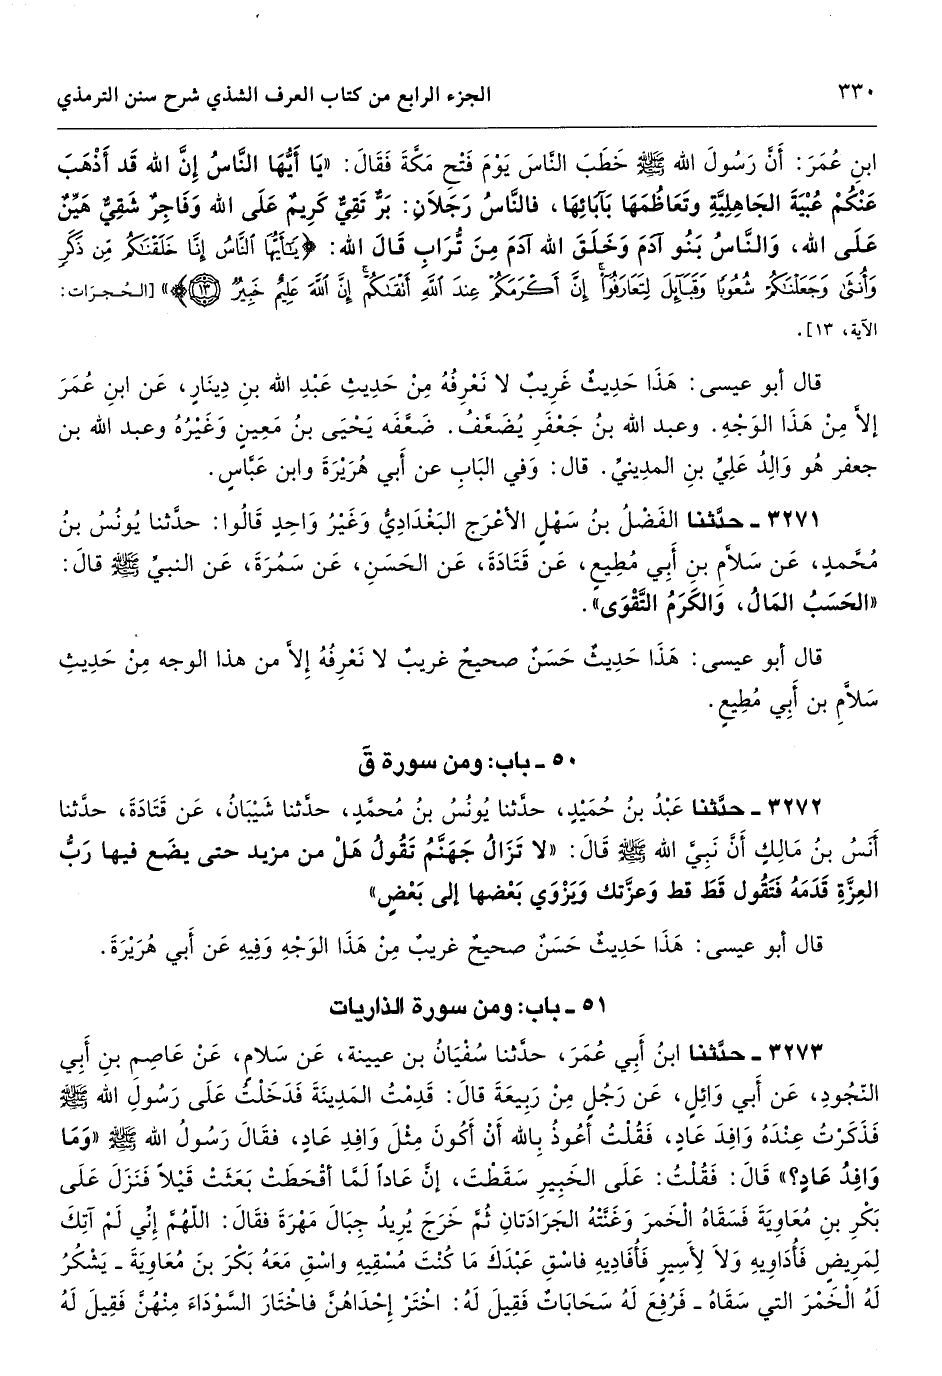 ٣٣٠ الجزء الرابع من كتاب العرف الشذي شرح سنن الترمذي
ابنِ عُمَرَ: أَنَّ رَسُولَ الله ﷺ خَطَبَ النَّاسَ يَوْمَ فَتْحِ مَكَّةَ فَقَالَ: «يَا أَيُّهَا النَّاسُ إِنَّ الله قَد أَذْهَبَ
عَنْكُمْ عُبِّيَّةَ الجَاهِلِيَّةِ وتَعَاظُمَهَا بَآبائِهَا، فالنَّاسُ رَجُلَانِ: بَرٌّ تَقِيٌّ كَرِيمٌ عَلَى الله وَفَاجِرٌ شَقِيٌّ هَيِّنٌ
عَلَى الله، وَالنَّاسُ بَنُو آدَمَ وَخَلَقَ الله آدَمَ مِنَ تُّرَابِ قَالَ الله: ﴿يَٰٓأَيُّهَا ٱلنَّاسُ إِنَّا خَلَقۡنَٰكُم مِّن ذَكَرٖ
وَأُنثَىٰ وَجَعَلۡنَٰكُمۡ شُعُوبٗا وَقَبَآئِلَ لِتَعَارَفُوٓاْۚ إِنَّ أَكۡرَمَكُمۡ عِندَ ٱللَّهِ أَتۡقَىٰكُمۡۚ إِنَّ ٱللَّهَ عَلِيمٌ خَبِيرٞ ١٣﴾» [الـحُـجـرَات:
الآية، ١٣].
قال أبو عيسى: هَذَا حَدِيثٌ غَرِيبٌ لا نَعْرِفُهُ مِنْ حَدِيثِ عَبْدِ الله بنِ دِينَارٍ، عَن ابنِ عُمَرَ
إلاَّ مِنْ هَذَا الوَجْهِ. وعبد الله بنُ جَعْفَرِ يُضَعَّفُ. ضَعَّفَه يَحْيَى بنُ مَعِينٍ وَغَيْرُهُ وعبد الله بن
جعفر هُو وَالِدُ عَلِيِّ بنِ المدِينيِّ. قال: وَفي البَابِ عن أبي هُرَيْرَةَ وابن عَبَّاسٍ.
٣٢٧١ ـ حدَّثنا الفَضْلُ بنُ سَهْلٍ الأعْرَج البَغْدَادِيُّ وَغَيْرُ وَاحِدٍ قَالُوا: حدَّثنا يُونُسُ بنُ
مُحَّمدٍ، عَن سَلاَّمِ بنِ أَبِي مُطِيعٍ، عَن قَتَادَةَ، عَن الحَسَنِ، عَن سَمُرَةَ، عَن النبيِّ ﷺ قالَ:
«الحَسَبُ المَالُ، وَالكَرَمُ التَّقْوَى».
قال أبو عيسى: هَذَا حَدِيثٌ حَسَنٌ صحيحٌ غريبٌ لا نَعْرِفُهُ إِلاَّ من هذا الوجه مِنْ حَدِيثِ
سَلاَّمِ بن أبِي مُطِيعٍ.
٥٠ ـ باب: ومن سورة قَ
٣٢٧٢ ـ حدَّثنا عَبْدُ بنُ حُمَيْدٍ، حدَّثنا يُونُسُ بنُ مُحمَّدٍ، حدَّثنا شَيْبَانُ، عَن قَتَادَةَ، حدَّثنا
أَنَسُ بنُ مَالِكٍ أنَّ نَبِيَّ الله ﷺ قَالَ: «لا تَزَالُ جَهَنَّمُ تَقُولُ هَلْ من مزيد حتى يضَع فيها رَبُّ
العِزَّةِ قَدَمَهُ فَتَقُول قَطَ قط وَعزَّتك وَيَزْوِي بَعْضها إلى بَعْضٍ»
قال أبو عيسى: هَذَا حَدِيثٌ حَسَنٌ صحيحٌ غريبٌ مِنْ هَذَا الوَجْهِ وَفِيهِ عَن أَبي هُرَيْرَةَ.
٥١ ـ باب: ومن سورة الذاريات
٣٢٧٣ ـ حدَّثنا ابنُ أَبي عُمَرَ، حدَّثنا سُفْيَانُ بن عيينة، عَن سَلامٍ، عَنْ عَاصِمِ بنِ أَبي
النَّجُودِ، عَن أَبي وَائِلٍ، عَن رَجُلٍ مِنْ رَبِيعَةَ قالَ: قَدِمْتُ المَدِينَةَ فَدَخَلْتُ عَلَى رَسُولِ الله ﷺ
فَذَكَرْتُ عِنْدَهُ وَافِدَ عَادٍ، فَقُلْتُ أَعُوذُ بِالله أَنْ أَكُونَ مِثْلَ وَافِدِ عَادٍ، فقالَ رَسُولُ الله ﷺ «وَمَا
وَافِدُ عَادٍ؟» قَالَ: فَقُلْتُ: عَلَى الخَبِيرِ سَقَطْتَ، إنَّ عَاداً لَمَّا أَقْحَطَتْ بَعَثَتْ قَيْلاً فَنَزَلَ عَلَى
بَكْرِ بنِ مُعَاوِيَةَ فَسَقَاهُ الْخمرَ وَغَنَّتْهُ الجَرَادَتانِ ثُمَّ خَرَجَ يُرِيدُ جِبَالَ مَهْرَةَ فقَالَ: اللّهُمَّ إنِّي لَمْ آتِكَ
لِمَرِيضٍ فَأُدَاوِيهِ وَلاَ لِأَسِيرٍ فَأُفَادِيهِ فاسْقِ عَبْدَكَ مَا كُنْتَ مُسْقِيهِ واسْقِ مَعَهُ بَكْرَ بنَ مُعَاوِيَةَ ـ يَشْكُرُ
لَهُ الْخَمْرَ التي سَقَاهُ ـ فَرُفِعَ لَهُ سَحَابَاتٌ فَقِيلَ لَهُ: اخْتَرْ إِحْدَاهُنَّ فاخْتَارَ السَّوْدَاءَ مِنْهُنَّ فَقِيلَ لَهُ